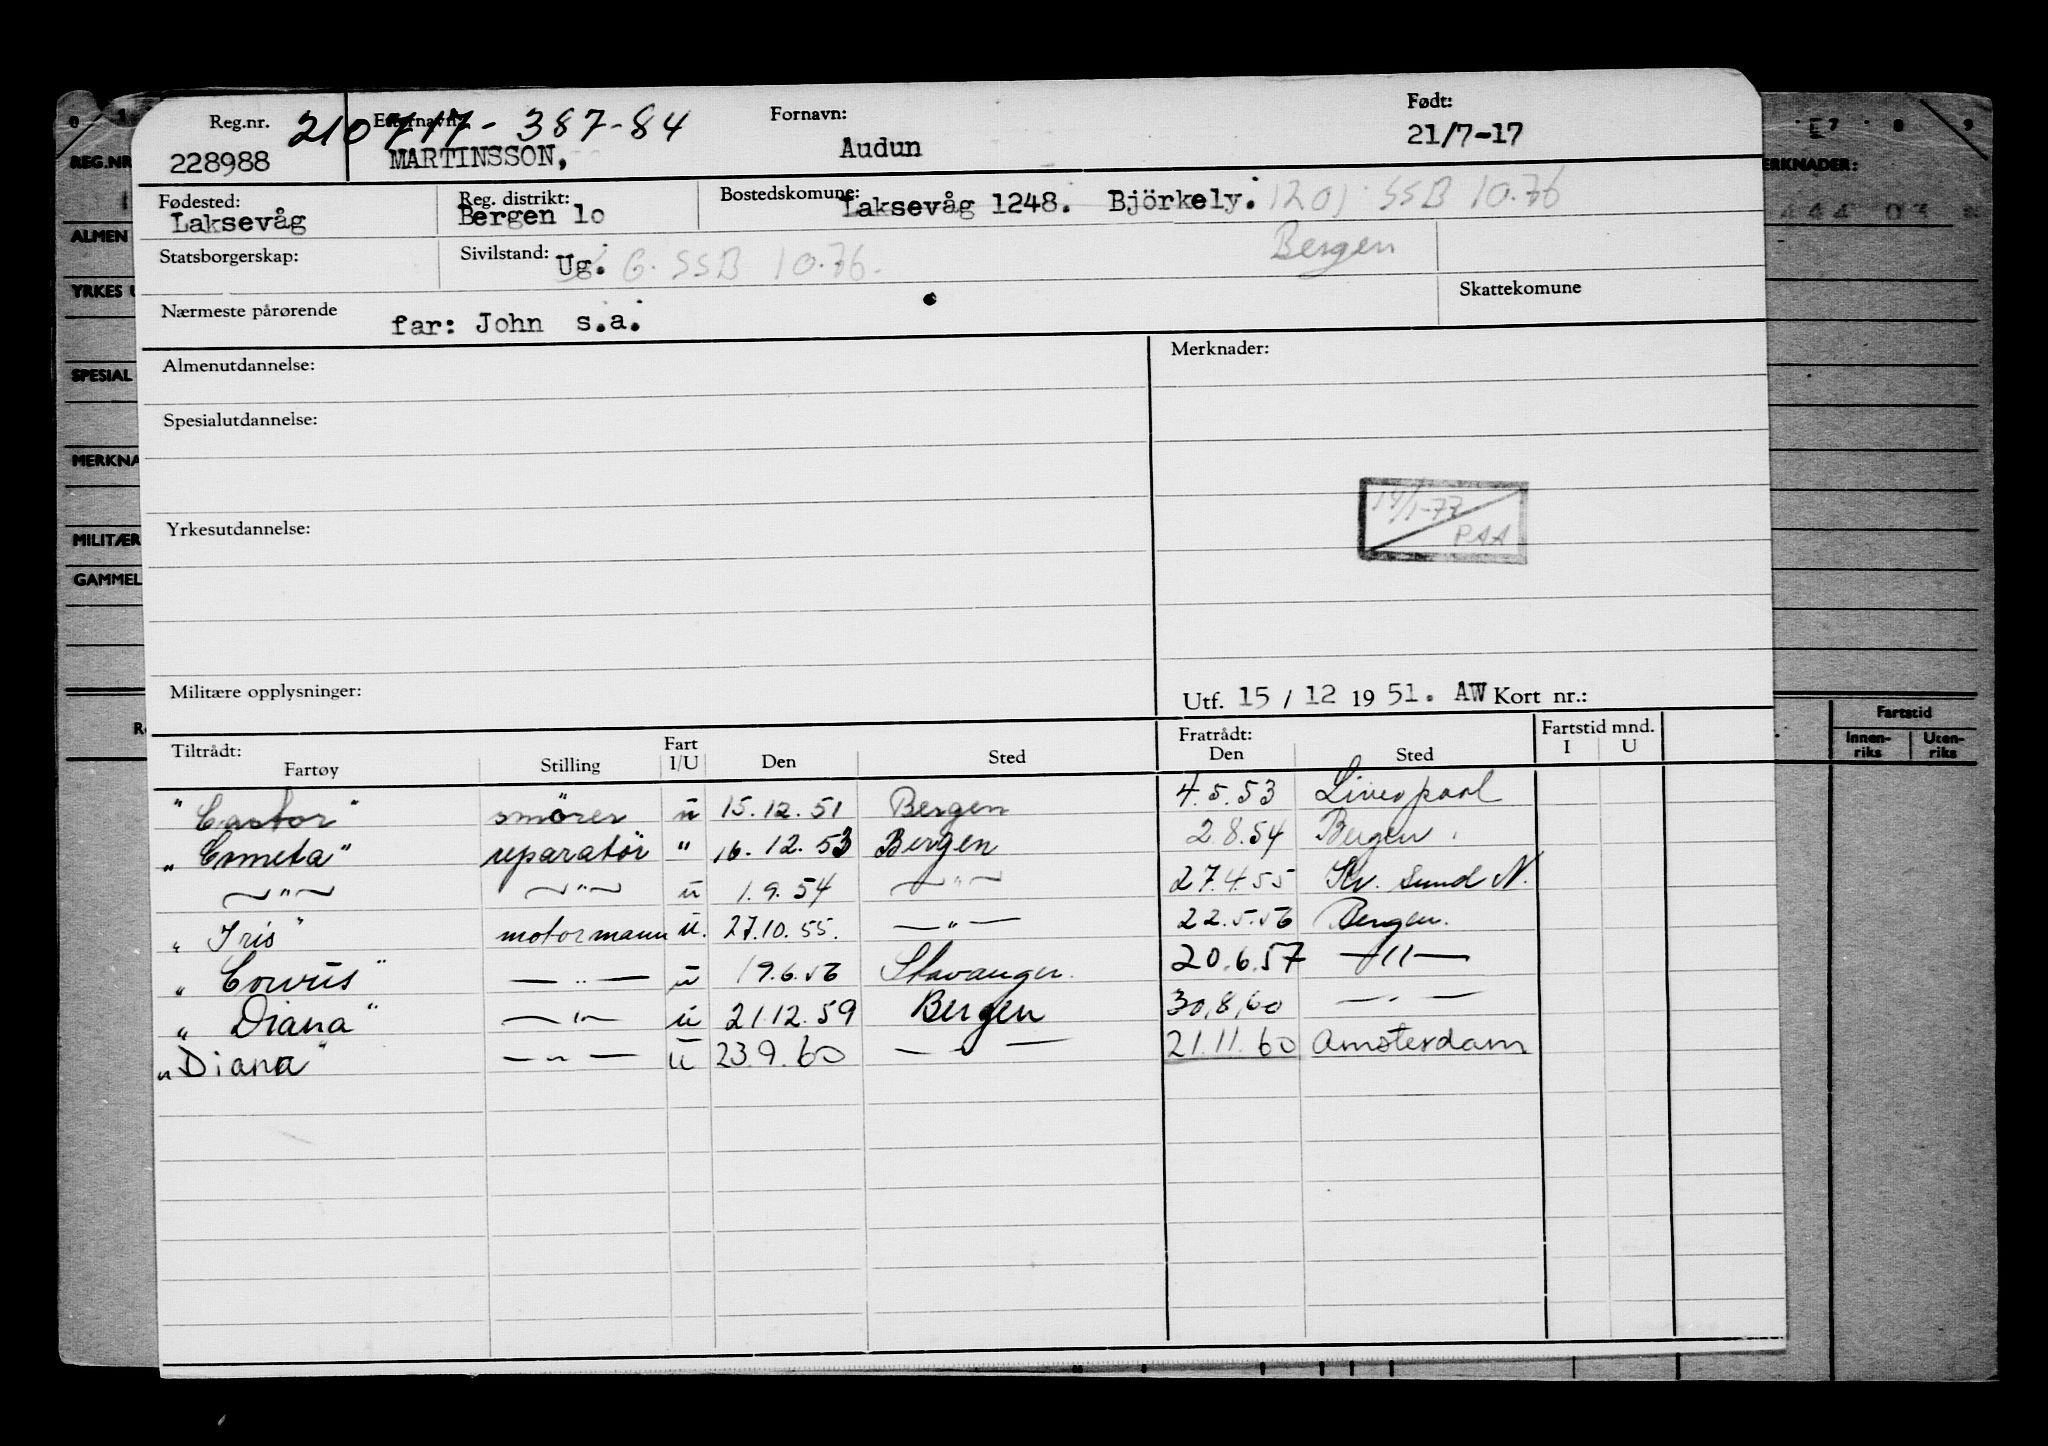 Reg.nr. Etternavn: 210717-387-84 Fornavn: Født:
228988 MARTINSSON, Audun 21/7-17
Fødested: Reg. distrikt: Bostedskomune:
Laksevåg Bergen lo Laksevåg 1248. Björkely. 1201 SSB 10.76
Bergen
Statsborgerskap: Sivilstand: Ug. G. SSB 10.76.
Skattekomune
Nærmeste pårørende far: John s.a.
Almenutdannelse: Merknader:
Spesialutdannelse:
14/1-77 PAA
Yrkesutdannelse:
Militære opplysninger: Utf. 15 / 12 19 51. AW Kort nr.:
Tiltrådt: Fart Fratrådt: Fartstid mnd.
Fartøy Stilling I/U Den Sted Den Sted I U
"Castor" smörer u 15.12.51 Bergen 4.5.53 Liverpool
"Cometa" reparatör " 16.12.53 Bergen 2.8.54 Bergen.
—"— —"— u 1.9.54 —"— 27.4.55 Kr. sund N.
"Iris" motormann u. 27.10.55. —"— 22.5.56 Bergen.
"Corvus" —"— u 19.6.56 Stavanger. 20.6.57 —"—
"Diana" —"— u 21.12.59 Bergen 30.8.60 —"—
"Diana" —"— u 23.9.60 —"— 21.11.60 Amsterdam
REG.NR
ALMEN
YRKES U
SPESIAL
MERKNA
MILITÆR
GAMMEL
ERKNADER:
Fartstid
Innen-riks Uten-riks